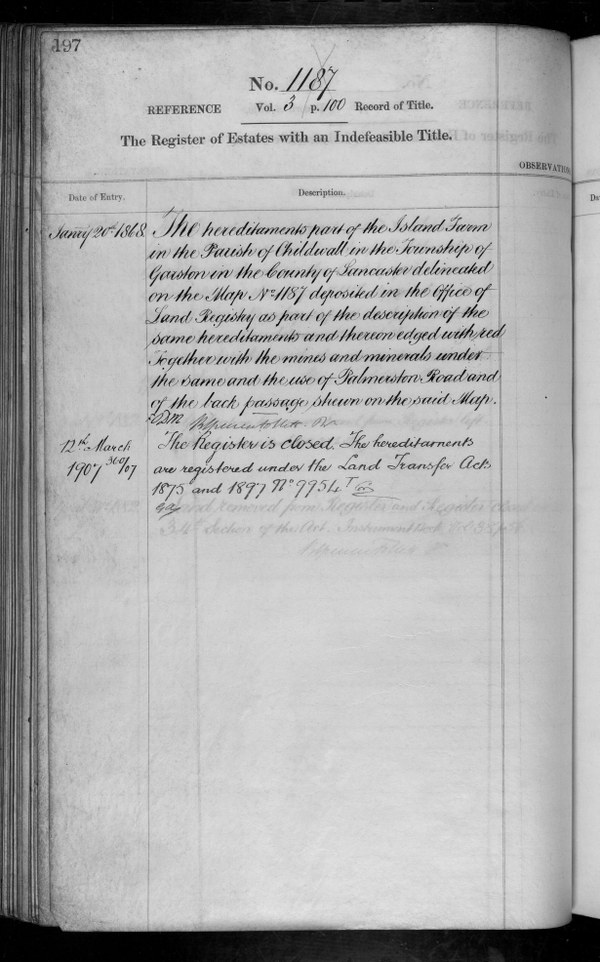 197
No. 1187
REFERENCE Vol. 3 p. 100 Record of Title.
The Register of Estates with an Indefeasible Title.
OBSERVATION
Date of Entry.
Description.
Janry 20th 1868. The hereditaments part of the Island Farm
in the Parish of Childwall in the Township of
Garston in the County of Lancaster delineated
on the Map No 1187 deposited in the Office of
Land Registry as part of the description of the
same hereditaments and thereon edged with red
Together with the mines and minerals under
the same and the use of Palmerston Road and
of the back passage shewn on the said Map.
12th March The Register is closed. The hereditaments
1907 360/07 are registered under the Land Transfer Acts
1875 and 1897 No 9954